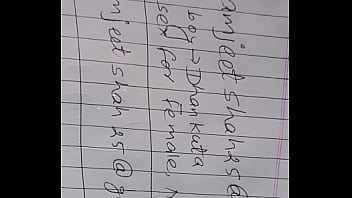 amjeet shah25@
boy → Dhankuta
sex for Female,
mjeet shah25@g